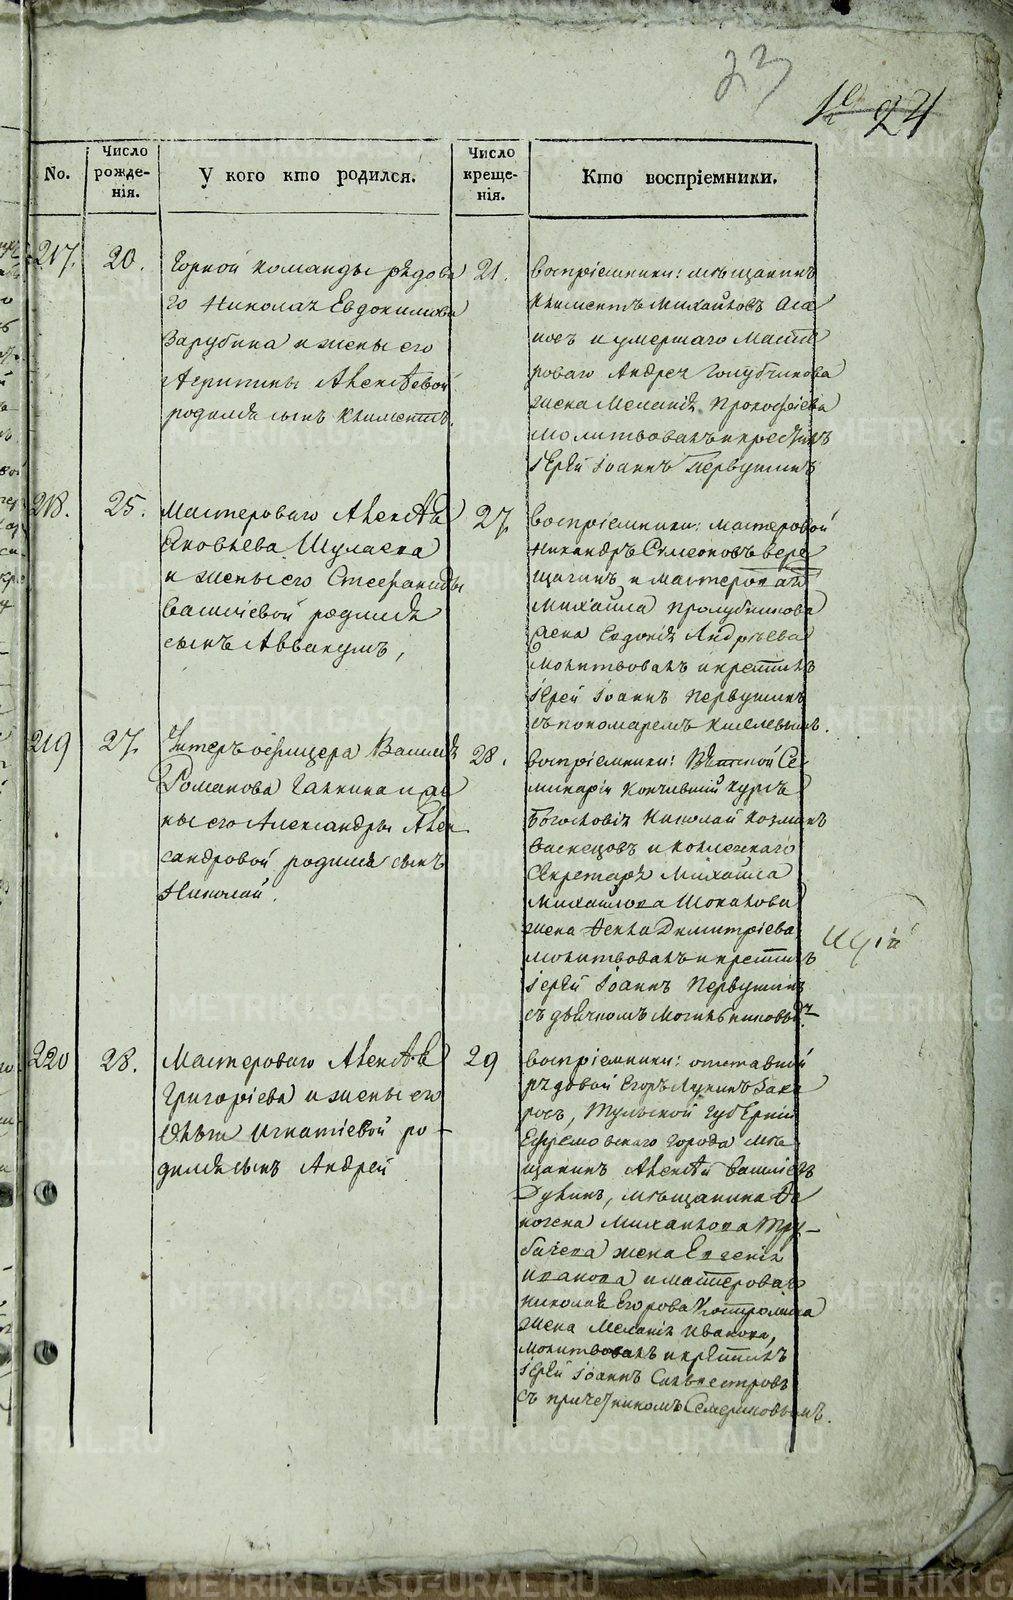 23
24
No.
Число рожденія.
У кого кто родился.
Число крещенія.
Кто воспріемники.
217.
20.
Горной команды рядова
го Николая Евдокимова
Зарубина и жены его
Агрипины Алексѣевой
родился сынъ Климентъ.
21.
Воспріемники: мѣщанинъ
Климентъ Михайловъ Ага
и умершаго Масте
роваго Андрея Голубчикова
жена Меланія Прокофіева
молитвовалъ и крестилъ
Іерей Іоаннъ Первушинъ
218.
25.
Мастероваго Алексѣя
Яковлева
и жены его Стефаниды
Васильевой родился
сынъ Аввакумъ,
27
Воспріемники: мастеровой
Никандръ Симеоновъ Вере
щагинъ и мастероваго
Михаила Пролубщикова
жена Евдокія Андрѣева
Молитвовалъ и крестилъ
Іерей Іоаннъ Первушинъ
съ пономаремъ Киселевымъ.
219
27.
Унтеръ офицера Василія
Романова Галкина и же
ны его Александры Алек
сандровой родился сынъ
Николай.
28.
Воспріемники: Вятской Се
минаріи кончившій курсъ
Богословія Николай Козминъ
Васнецовъ и коллежскаго
Секретаря Михаила
Михайлова Шокалова
жена Димитріева
молитвовалъ и крестилъ
Іерей Іоаннъ Первушинъ
съ дьячкомъ
220
28.
Мастероваго Алексѣя
Григоріева и жены его
Игнатіевой ро-
дился сынъ Андрей
29
Воспріемники: отставной
рядовой Егоръ Лукинъ Заха
ровъ, Тульской губерніи
Ефремовскаго города мѣ
щанинъ Алексѣй Васильевъ
мѣщанина
Михайлова Тру-
бачева жена Евгенія
Иванова и мастероваго
Николая Егорова Костромина
жена Меланія Иванова,
молитвовалъ и крестилъ
Іерей Іоаннъ Сильвестровъ
съ причетникомъ Семериковымъ.
METRIKI.GASO-URAL.RU